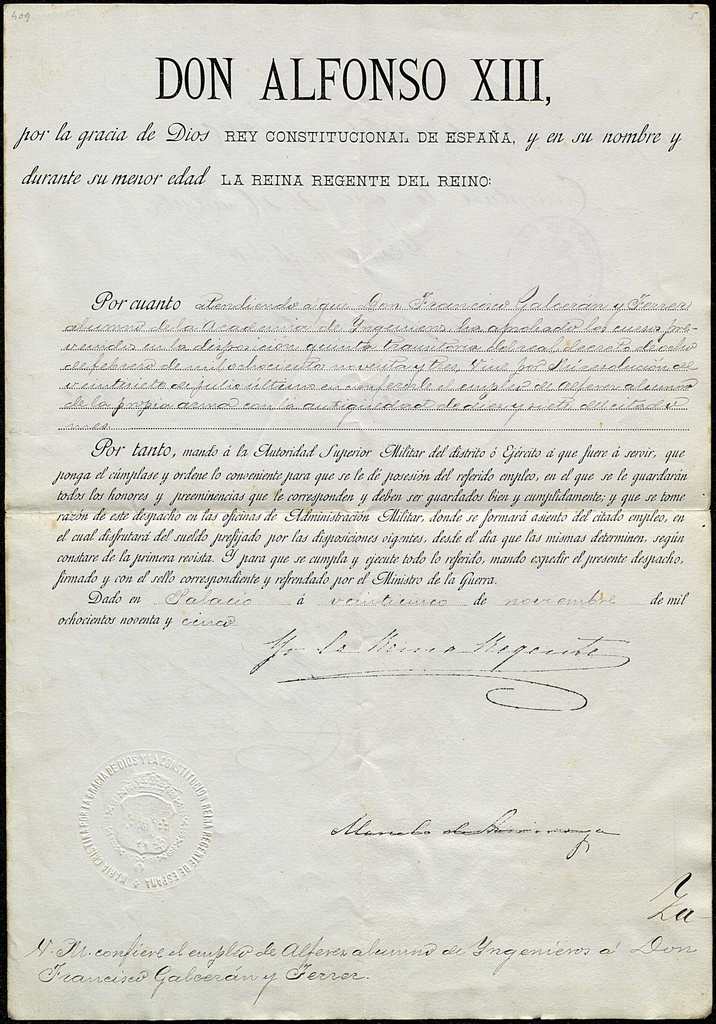 409
5
DON ALFONSO XIII,
por la gracia de Dios REY CONSTITUCIONAL DE ESPAÑA, y en su nombre y
durante su menor edad LA REINA REGENTE DEL REINO:
Por cuanto atendiendo a que Don Francisco Galcerán y Ferrer
alumno de la Academia de Yngenieros, ha aprobado los cursos pre-
venidos en la disposicion quinta transitoria del real decreto de ocho
de febrero de mil ochocientos noventa y tres, Vine por Mi resolucion de
veintisiete de julio ultimo en conferirle el empleo de Alferez alumno
de la propia arma con la antigüedad de diez y siete del citado
mes.
Por tanto, mando á la Autoridad Superior Militar del distrito ó Ejército á que fuere á servir, que
ponga el cúmplase y ordene lo conveniente para que se le dé posesión del referido empleo, en el que se le guardarán
todos los honores y preeminencias que le corresponden y deben ser guardados bien y cumplidamente; y que se tome
razón de este despacho en las oficinas de Administración Militar, donde se formará asiento del citado empleo, en
el cual disfrutará del sueldo prefijado por las disposiciones vigentes, desde el día que las mismas determinen, según
constare de la primera revista. Y para que se cumpla y ejecute todo lo referido, mando expedir el presente despacho,
firmado y con el sello correspondiente y refrendado por el Ministro de la Guerra.
Dado en Palacio á veinticinco de noviembre de mil
ochocientos noventa y cinco
Yo la Reina Regente
MARIA CRISTINA POR LA GRACIA DE DIOS Y LA CONSTITUCION REINA REGENTE DE ESPAÑA
Marcelo de Azcárraga
V. M. confiere el empleo de Alferez alumno de Yngenieros á Don
Francisco Galcerán y Ferrer.